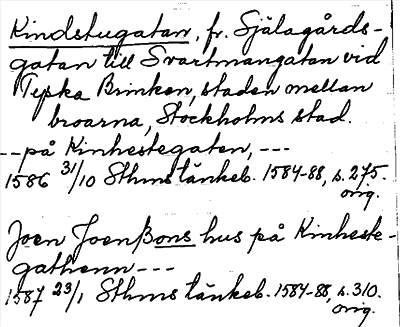 Kindstugatan, fr. Själagårds-
gatan till Svartmangatan vid
Tyska Brinken, staden mellan
broarna, Stockholms stad.
--på Kinhestegaten, ---
1586 31/10 Sthms tänkeb. 1584-88, s. 275.
orig.
Joen Joenßons hus på Kinheste-
gathenn ---
1587 23/1 Sthms tänkeb. 1584-88, s. 310.
orig.